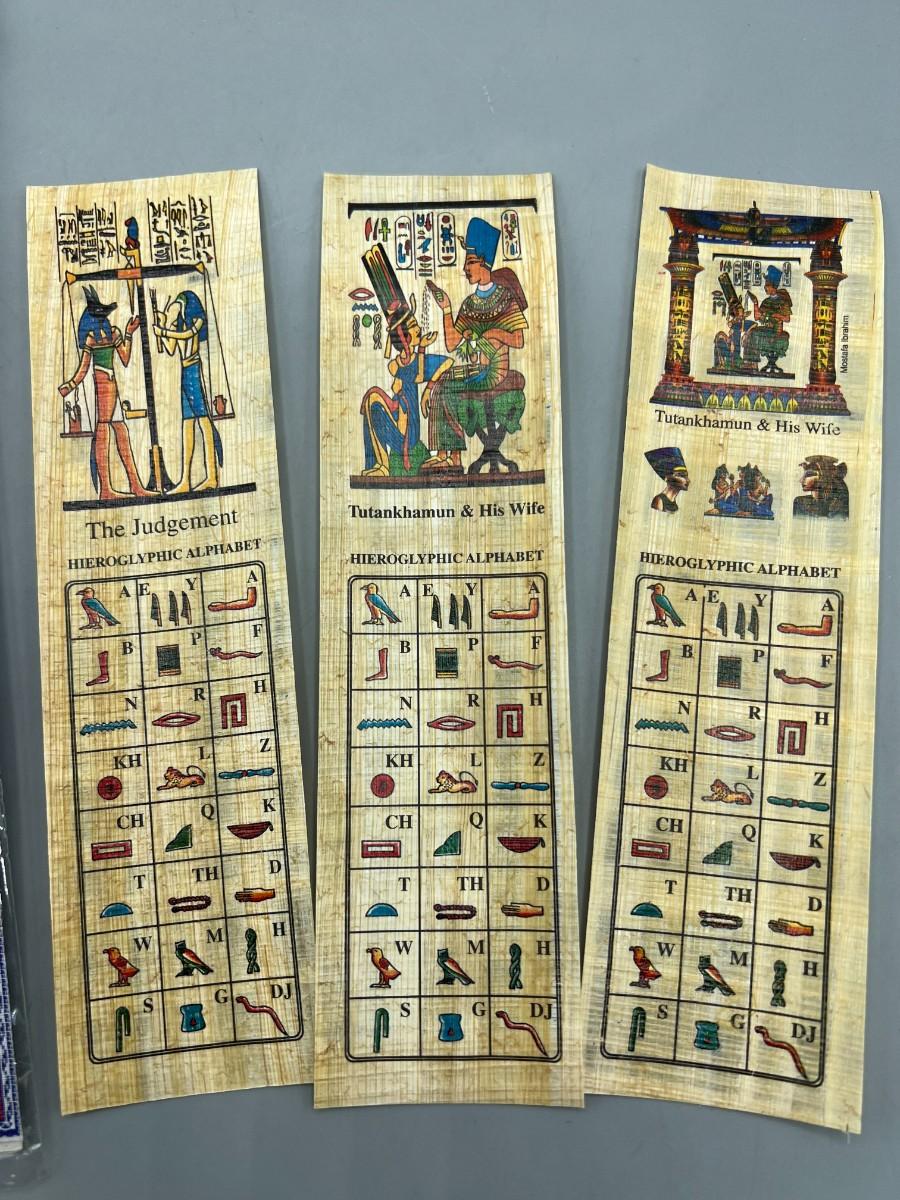 The Judgement
HIEROGLYPHIC ALPHABET
A E Y A
B P F
N R H
KH L Z
CH Q K
T TH D
W M H
S G DJ
Tutankhamun & His Wife
HIEROGLYPHIC ALPHABET
A E Y A
B P F
N R H
KH L Z
CH Q K
T TH D
W M H
S G DJ
Mostafa Ibrahim
Tutankhamun & His Wife
HIEROGLYPHIC ALPHABET
A E Y A
B P F
N R H
KH L Z
CH Q K
T TH D
W M H
S G DJ